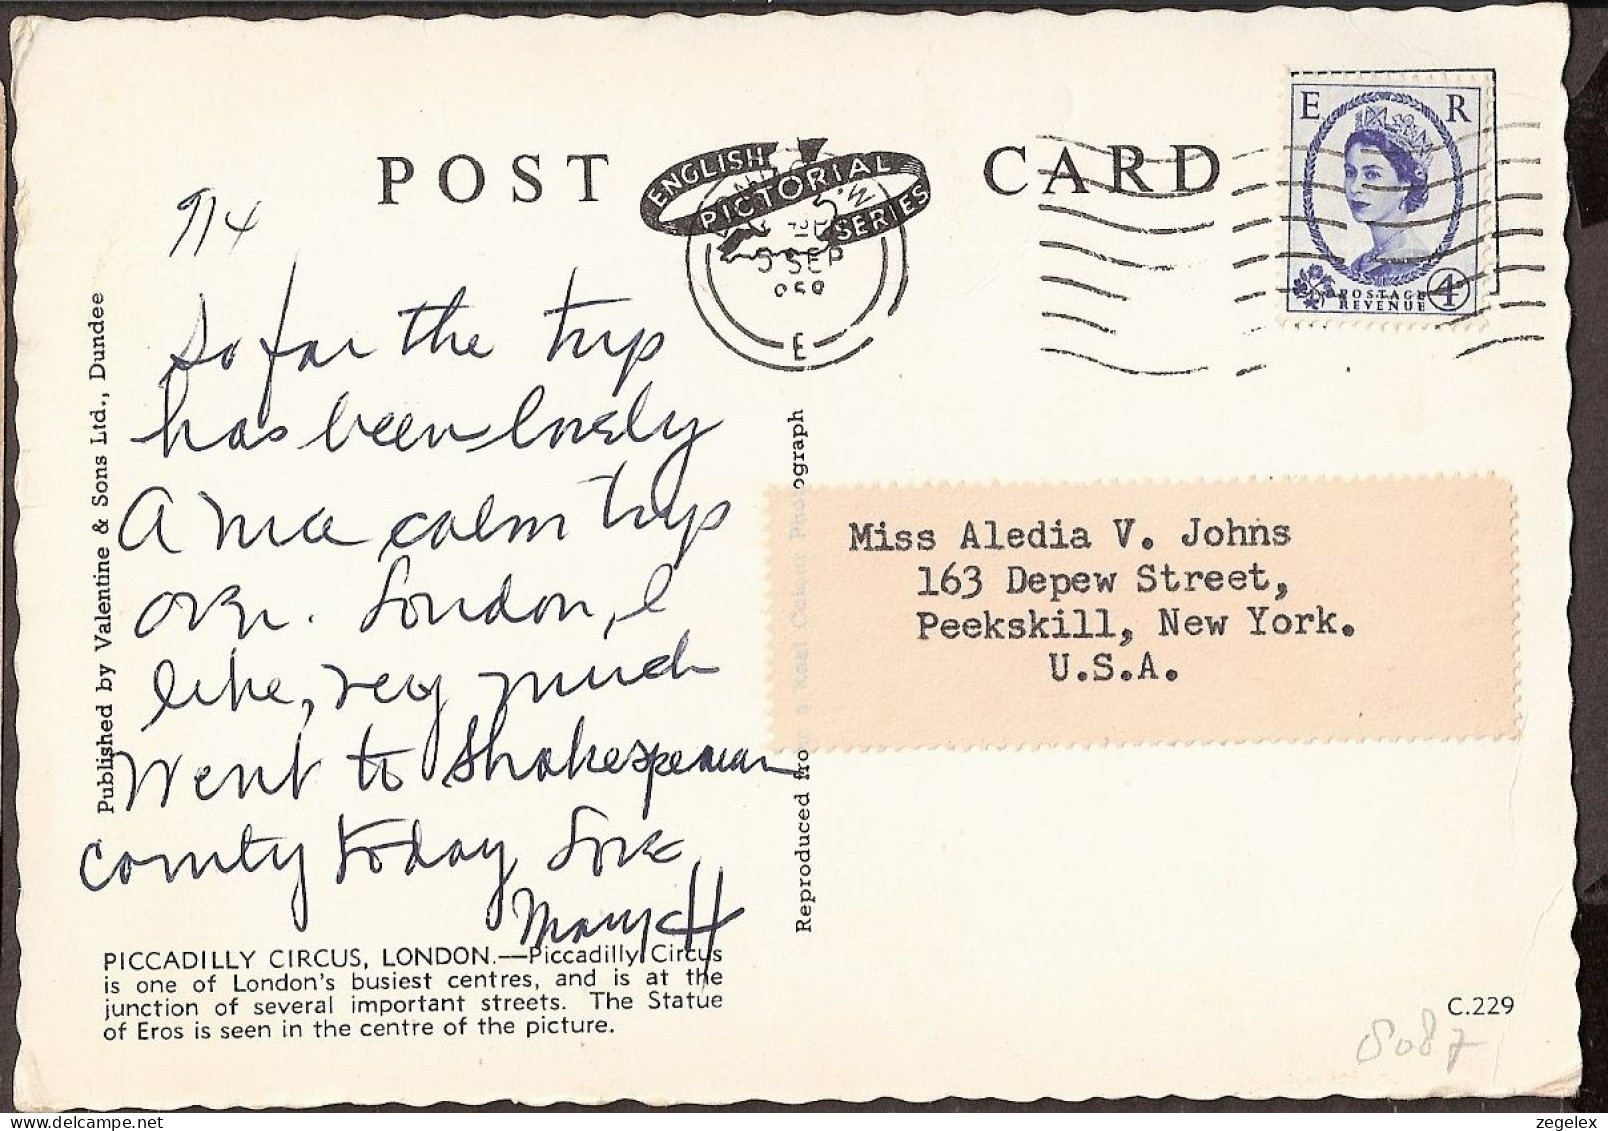 POST CARD
ENGLISH
PICTORIAL
SERIES
5 SEP
E
E R
POSTAGE
REVENUE
4
9/4
So far the trip
has been lovely
A nice calm trip
over. London, I
like, very much
Went to Shakespearean
county today Love
Mary H
Miss Aledia V. Johns
163 Depew Street,
Peekskill, New York.
U.S.A.
Published by Valentine & Sons Ltd., Dundee
Reproduced from a Real Colour Photograph
PICCADILLY CIRCUS, LONDON.—Piccadilly Circus
is one of London's busiest centres, and is at the
junction of several important streets. The Statue
of Eros is seen in the centre of the picture.
C.229
8087
zegelex